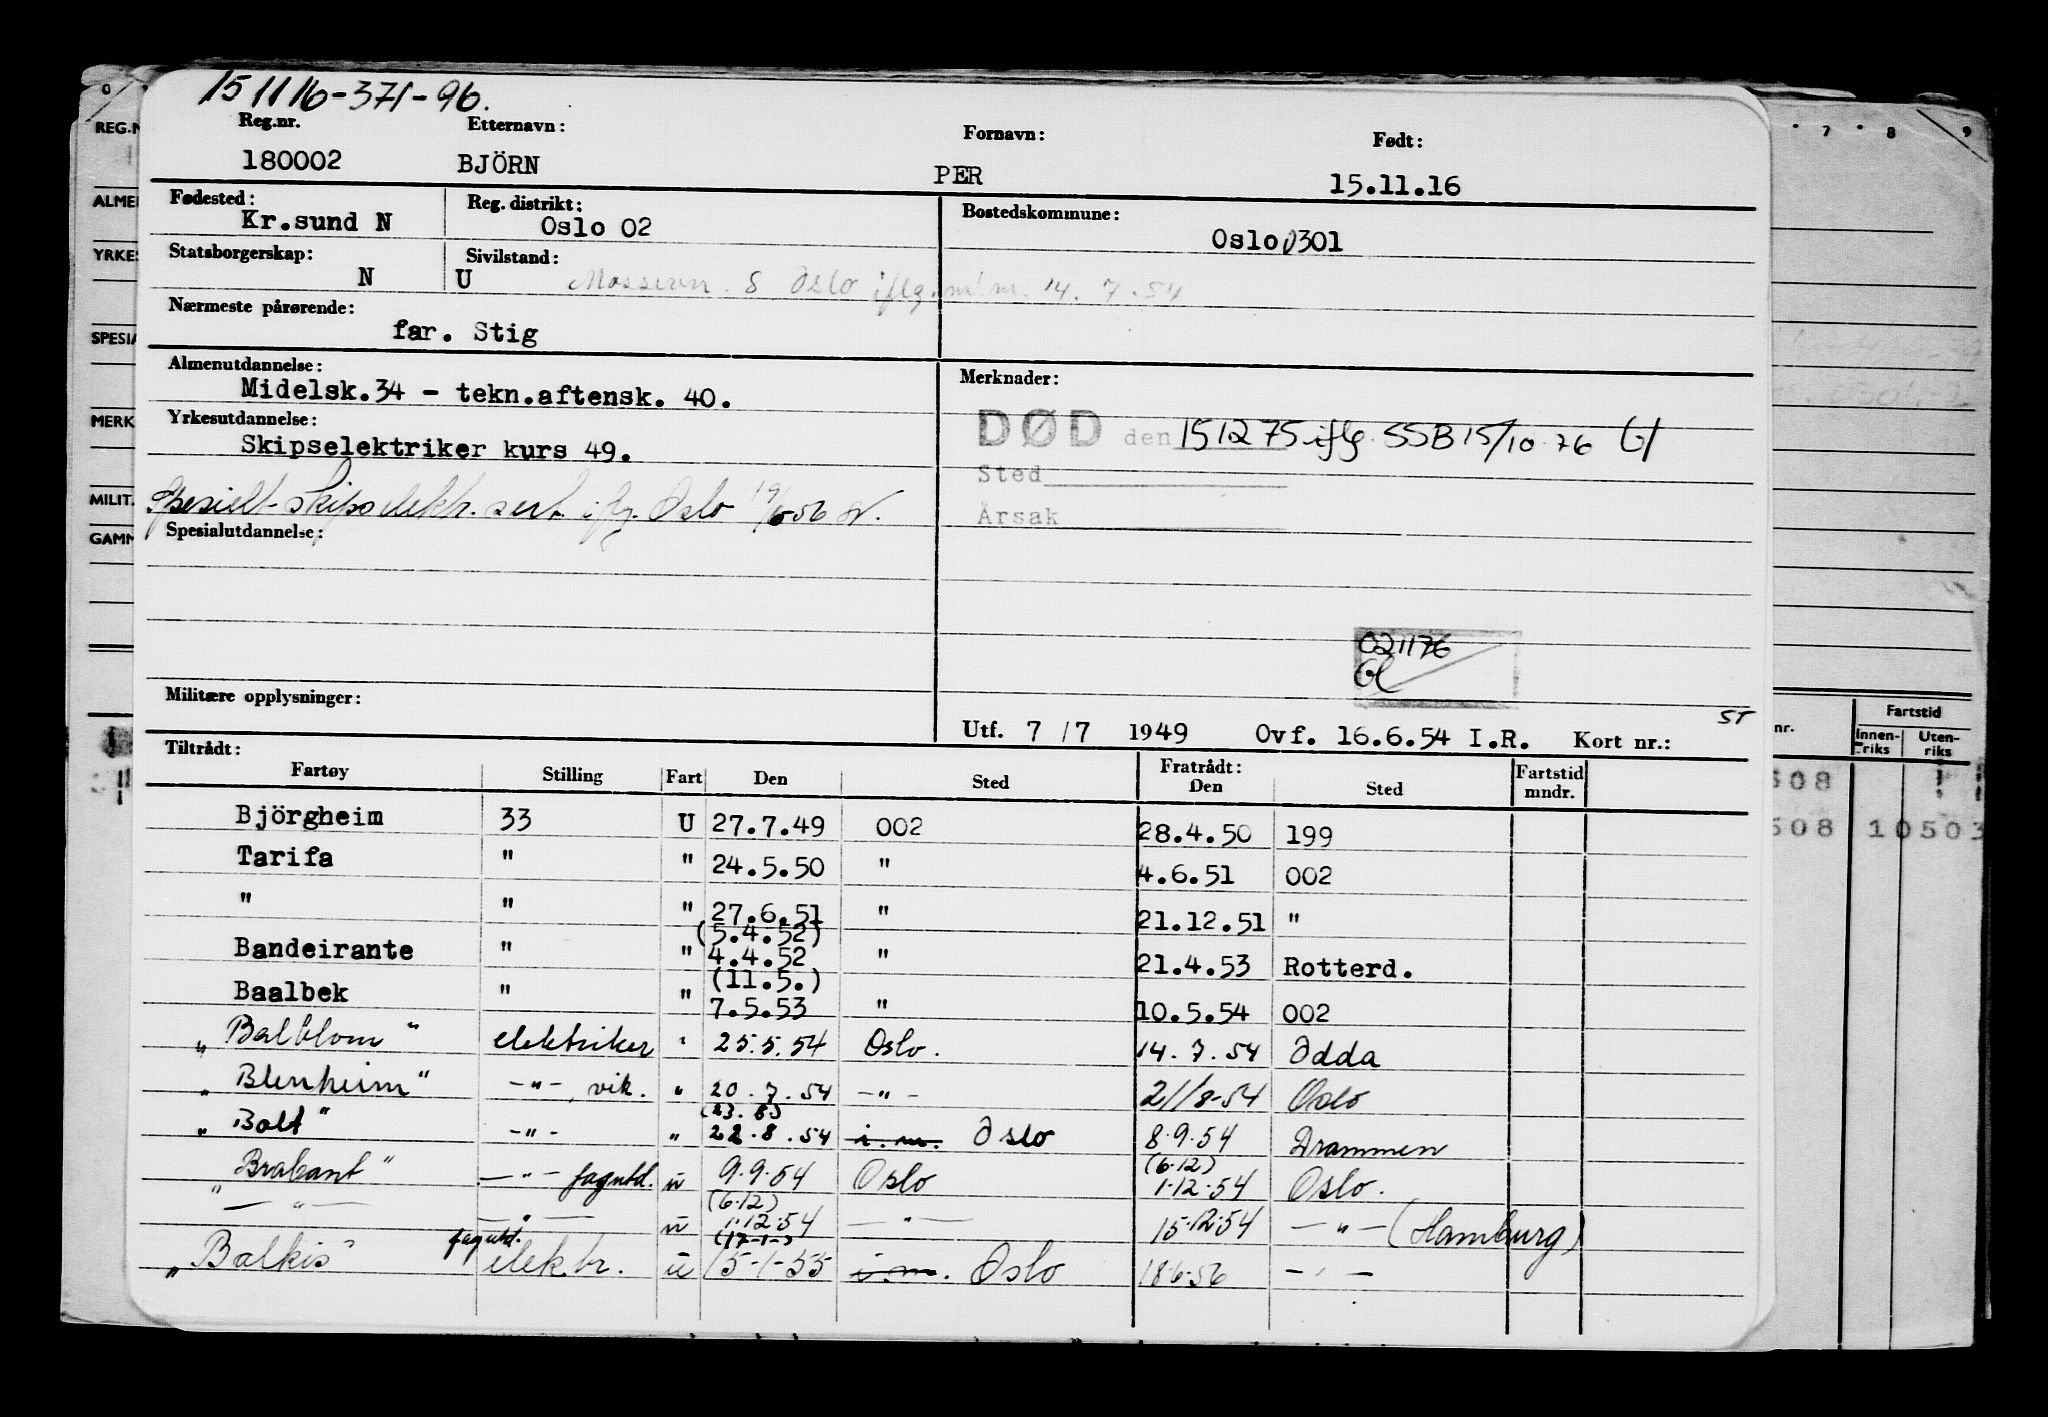 151116-371-96.
Reg.nr. Etternavn: Fornavn: Født:
180002 BJÖRN PER 15.11.16
Fødested: Reg. distrikt: Bostedskommune:
Kr.sund N Oslo 02 Oslo 0301
Statsborgerskap: Sivilstand:
N U Oslo iflg. m.m. 14. 7. 54
Nærmeste pårørende:
far. Stig
Almenutdannelse: Merknader:
Midelsk.34 - tekn.aftensk. 40.
DØD den 151275 iflg. SSB 15/10-76
Yrkesutdannelse:
Skipselektriker kurs 49.
Sted
Spesielt skipselektr. sert. iflg. Oslo 19/6-56
Årsak
Spesialutdannelse:
021176
Militære opplysninger:
Utf. 7 /7 1949 Ovf. 16.6.54 I.R. Kort nr.: ST
Tiltrådt: Fratrådt:
Fartøy Stilling Fart Den Sted Den Sted Fartstid mndr.
Björgheim 33 U 27.7.49 002 28.4.50 199
Tarifa " " 24.5.50 " 4.6.51 002
" " " 27.6.51 " 21.12.51 "
(5.4.52)
Bandeirante " " 4.4.52 " 21.4.53 Rotterd.
(11.5.)
Baalbek " " 7.5.53 " 10.5.54 002
„Balblom" elektriker " 25.5.54 Oslo. 14.7.54 Odda
„Blenheim" -"-, vik. " 20.7.54 -"- 21/8-54 Oslo
(23.8)
„Bolt" -"- " 22.8.54 i.m. Oslo 8.9.54 Drammen
(6.12)
„Brabant" -"- fagutd. u 9.9.54 Oslo 1.12.54 Oslo.
(6.12)
-"- -"- u 1.12.54 -"- 15.12.54 -"- (Hamburg)
fagutd. (17-1-)
„Balkis" elektr. u 15-1-55 i.m. Oslo 18.6.56 -"-
REG.N
ALMEN
YRKES
SPESIA
MERK
MILIT.
GAMM
7 8 9
nr. Fartstid
Innen-riks Uten-riks
508
508 10503